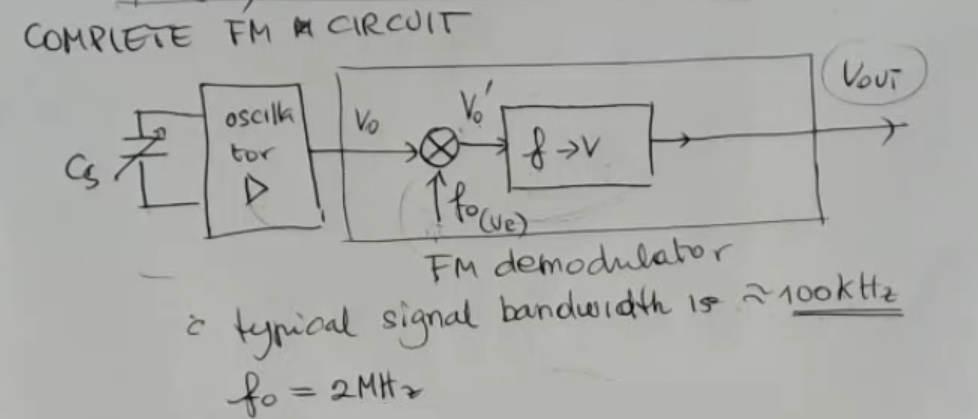 COMPLETE FM CIRCUIT
Vout
oscilla
tor
Vo
Vo'
f→V
Cs
fo(Vc)
FM demodulator
typical signal bandwidth is ≈ 100kHz
fo = 2MHz